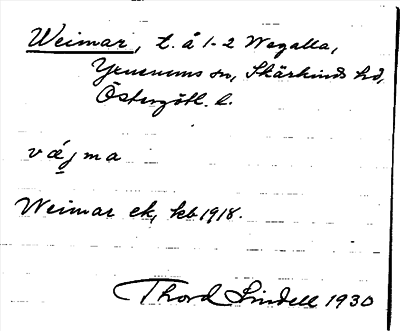 Weimar, t. å 1-2 Wegalla,
Yxnerums sn, Skärkinds hd,
Östergötl. l.
väjma
Weimar ek, kb 1918.
Thord Lindell 1930